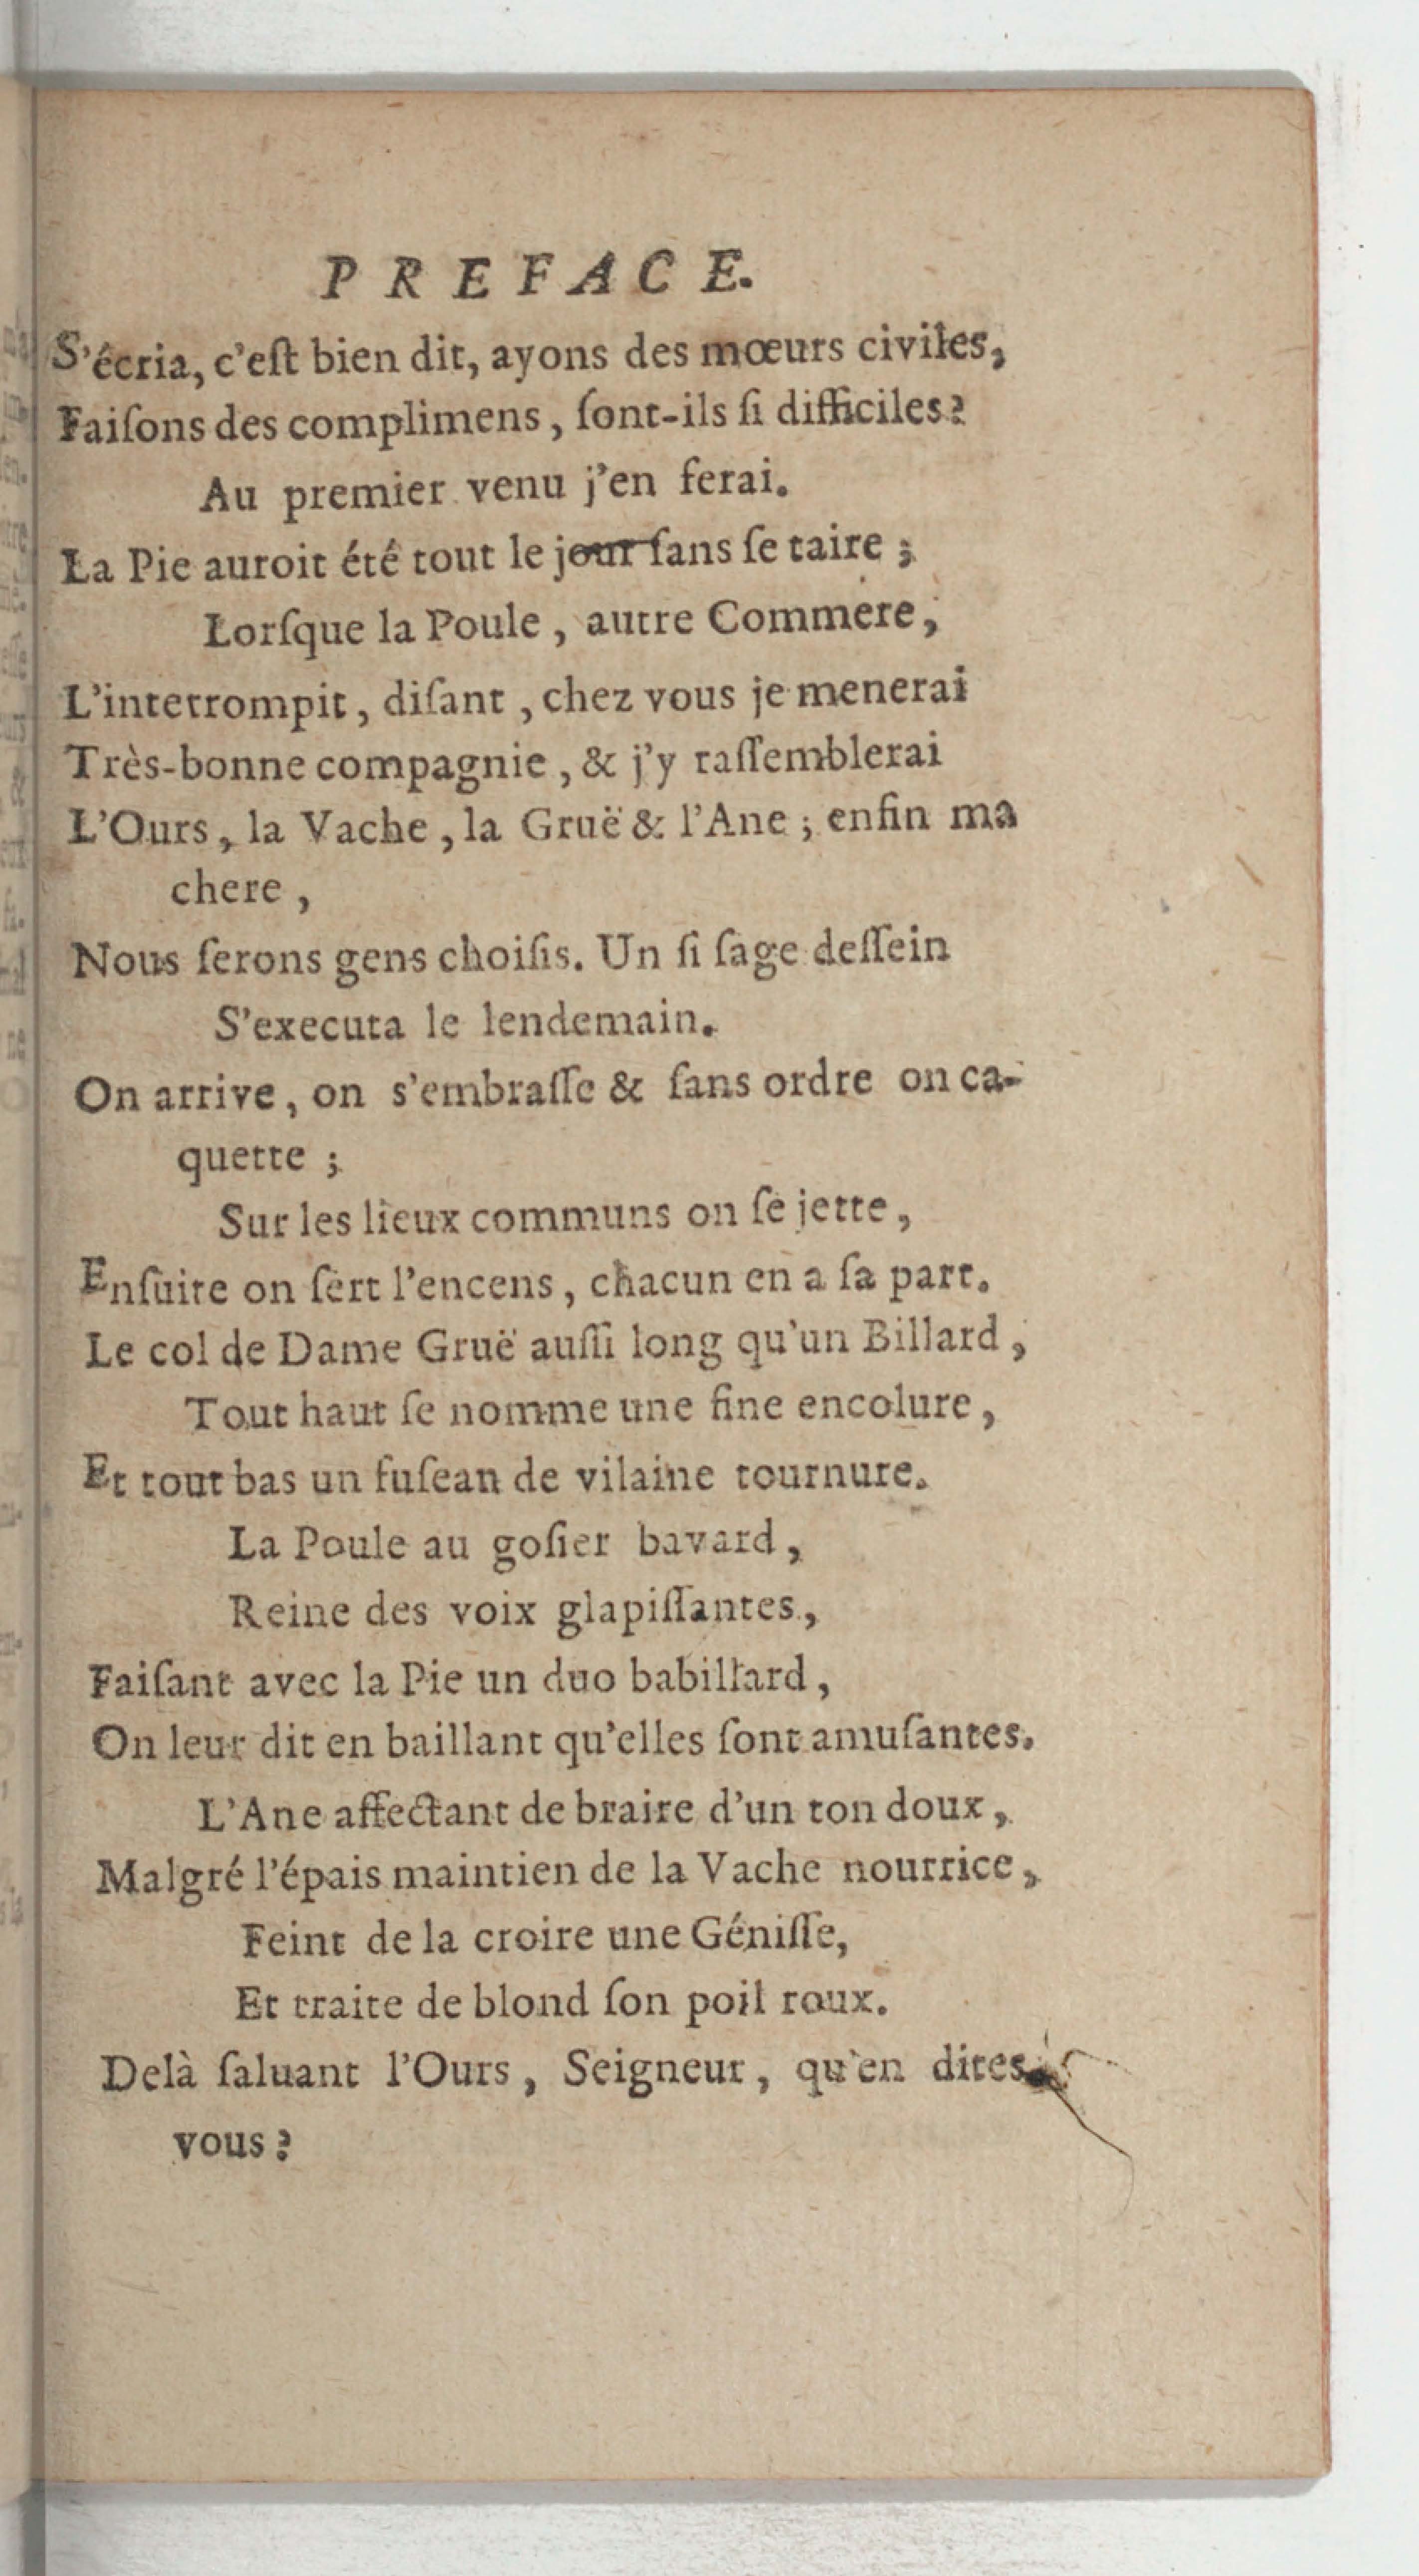 PREFACE.
S'écria, c'eſt bien dit, ayons des mœurs civiles,
Faiſons des complimens, ſont-ils ſi difficiles?
Au premier venu j'en ferai.
La Pie auroit été tout le jour ſans ſe taire;
Lorſque la Poule, autre Commere,
L'interrompit, diſant, chez vous je menerai
Très-bonne compagnie, & j'y raſſemblerai
L'Ours, la Vache, la Gruë & l'Ane; enfin ma
chere,
Nous ſerons gens choiſis. Un ſi ſage deſſein
S'executa le lendemain.
On arrive, on s'embraſſe & ſans ordre on ca-
quette;
Sur les lieux communs on ſe jette,
Enſuite on ſert l'encens, chacun en a ſa part.
Le col de Dame Gruë auſſi long qu'un Billard,
Tout haut ſe nomme une fine encolure,
Et tout bas un fuſean de vilaine tournure.
La Poule au goſier bavard,
Reine des voix glapiſſantes,
Faiſant avec la Pie un duo babillard,
On leur dit en baillant qu'elles ſont amuſantes.
L'Ane affectant de braire d'un ton doux,
Malgré l'épais maintien de la Vache nourrice,
Feint de la croire une Géniſſe,
Et traite de blond ſon poil roux.
Delà ſaluant l'Ours, Seigneur, qu'en dites
vous?